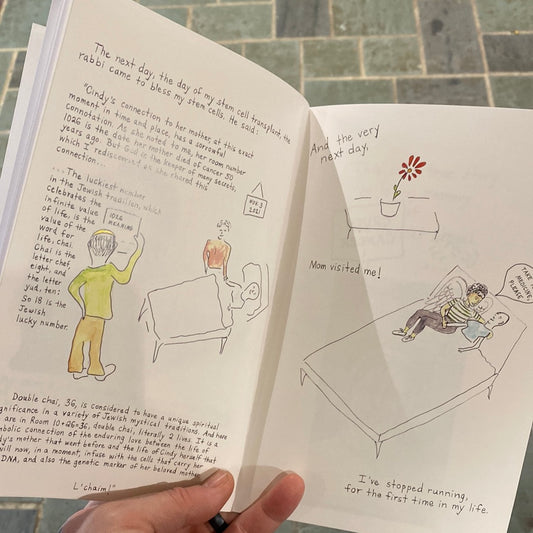 The next day, the day of my stem cell transplant, the
rabbi came to bless my stem cells. He said:
"Cindy's connection to her mother at this exact
moment in time and place, has a sorrowful
connotation. As she noted to me, her room number
1026 is the date her mother died of cancer 50
years ago. But God is the keeper of many secrets,
which I rediscovered as she shared this
connection...
...The luckiest number
in the Jewish tradition, which
celebrates the
infinite value
of life, is the
value of the
word for
life, chai.
Chai is the
letter chef
eight, and
the letter
yud, ten:
So 18 is the
Jewish
lucky number.
1026
MEANING
NOV. 3
2021
Double chai, 36, is considered to have a unique spiritual
significance in a variety of Jewish mystical traditions. And here
are in Room 10+26=36, double chai, literally 2 lives. It is a
symbolic connection of the enduring love between the life of
Cindy's mother that went before and the life of Cindy herself that
will now, in a moment, infuse with the cells that carry her
DNA, and also the genetic marker of her beloved mother.
L'chaim!"
And the very
next day,
Mom visited me!
TAKE
MEDICINE,
PLEASE
I've stopped running,
for the first time in my life.